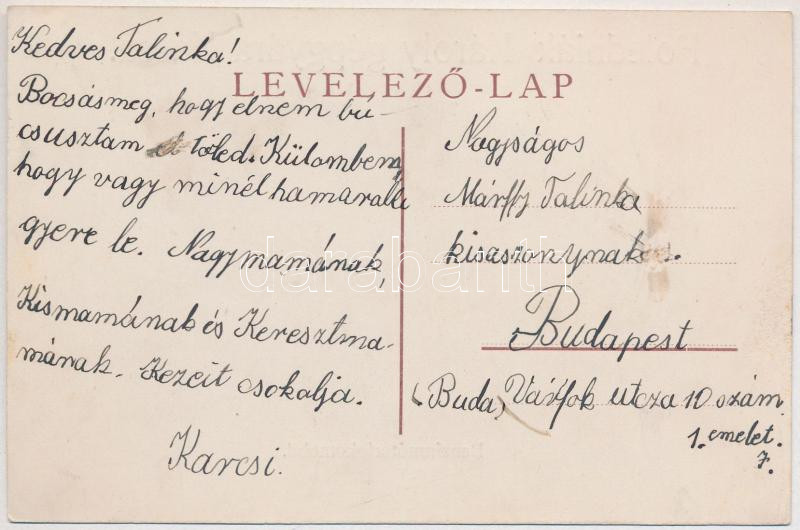 Kedves Talinka!
LEVELEZŐ-LAP
Bocsásmeg, hogy elnem bú-
csusztam el töled. Külomben
hogy vagy minél hamarabb
gyere le. Nagymamának,
Kismamának és Keresztma-
mának. Kezeit csokalja.
Karcsi.
Nagyságos
Márffy Talinka
kisaszonynak.
Budapest
(Buda) Várfok utcza 10 szám.
1. emelet.
7.
darabanth